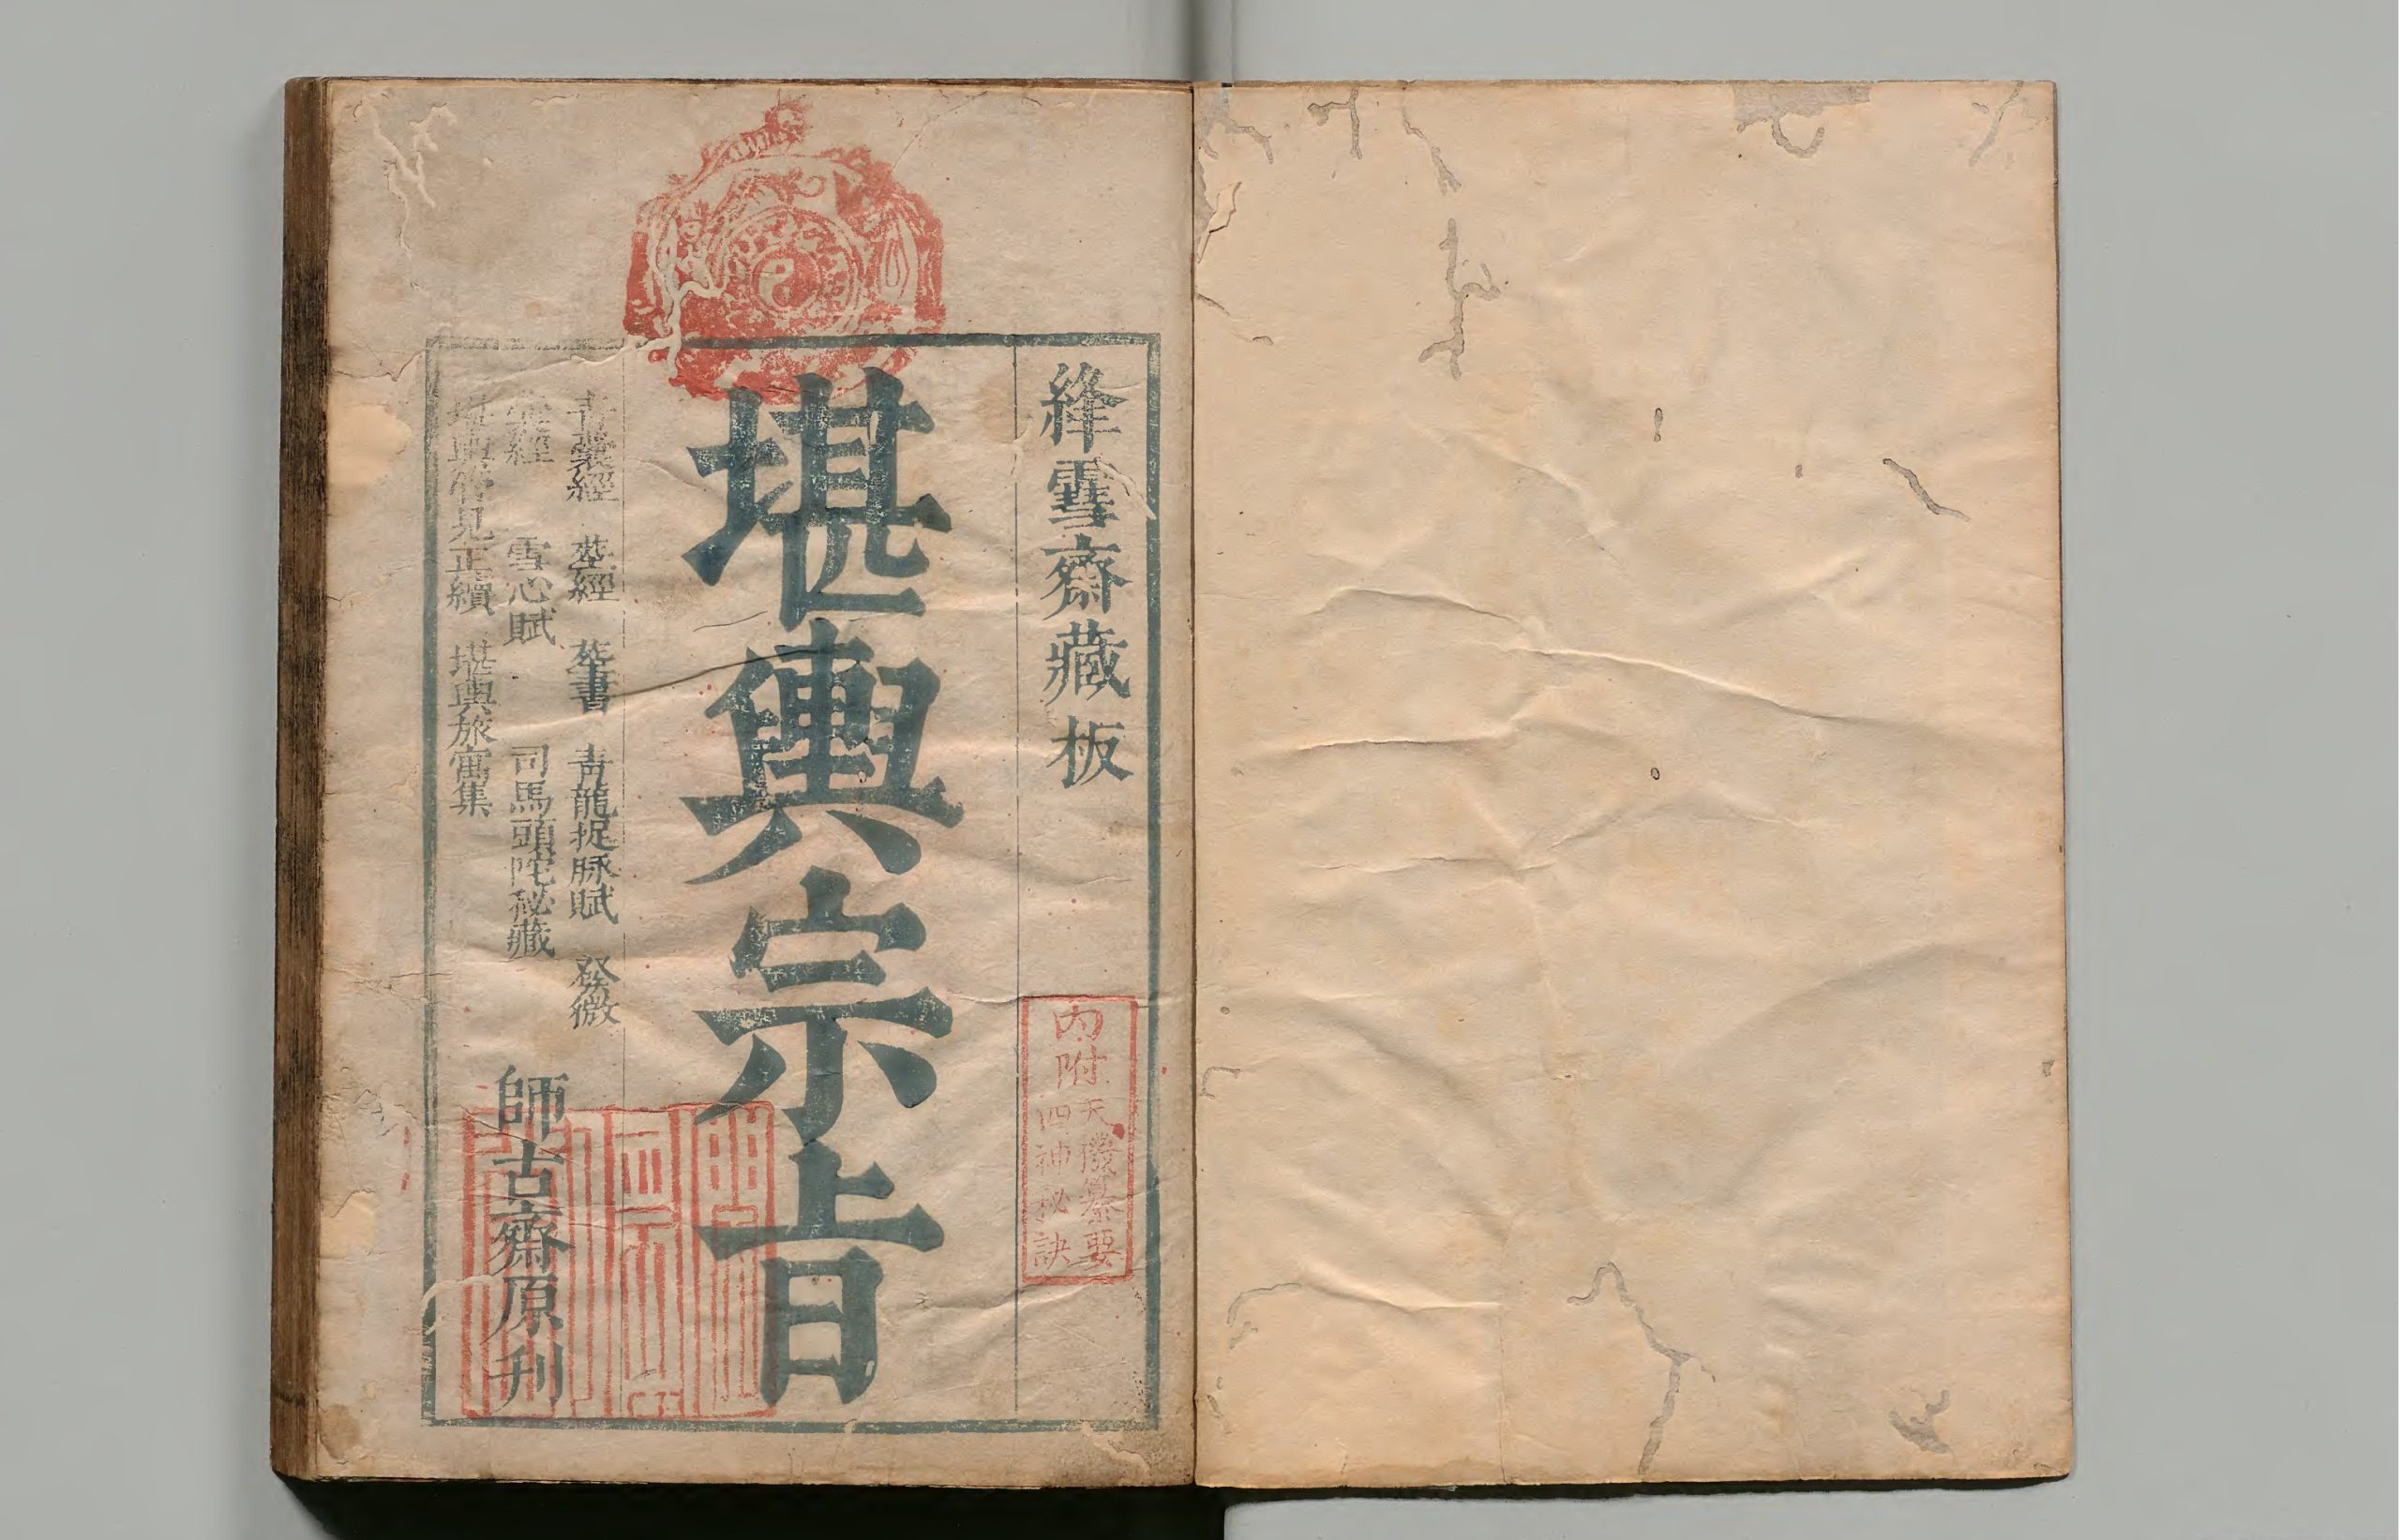 絳雪齋藏板
內附
天機纂要
四神秘訣
堪輿宗旨
青囊經 葬經 葬書 青龍捉脉賦 發微
雪心賦 司馬頭陀秘藏
堪輿管見正續 堪輿旅寓集
師古齋原刋